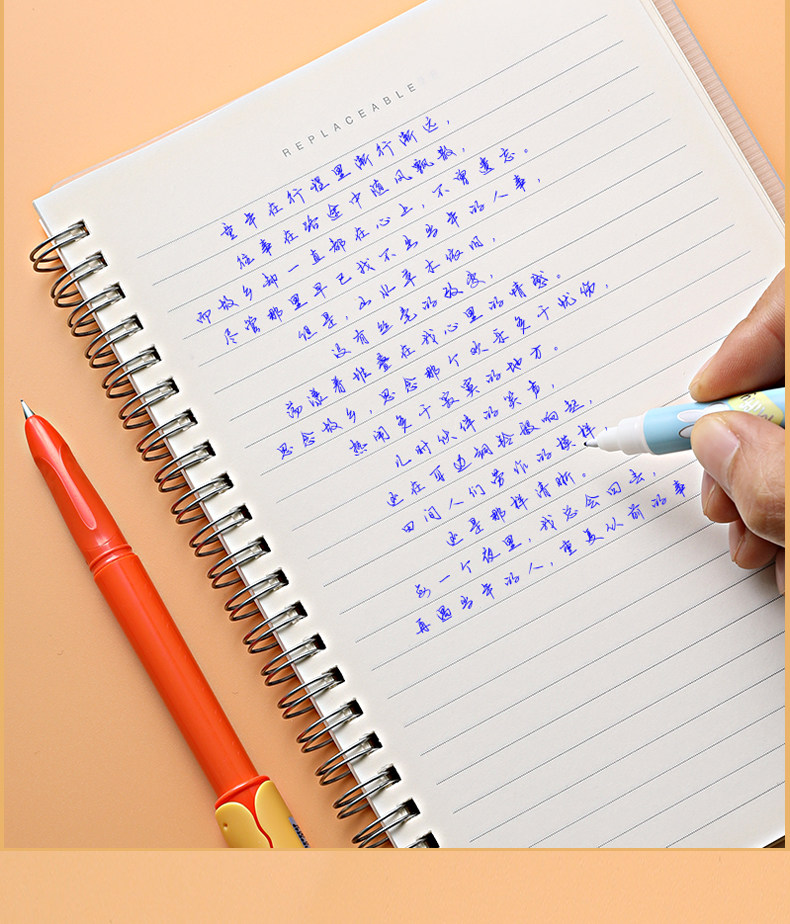 REPLACEABLE
童年在行程里渐行渐远，
往事在路途中随风飘散，
而故乡却一直都在心上，不曾遗忘。
尽管那里早已找不出当年的人事，
但是，山水草木依旧，
没有丝毫的改变，
荡漾着堆叠在我心里的情感。
思念故乡，思念那个欢乐负于忧伤，
热闹负于寂寞的地方。
儿时伙伴的笑声，
还在耳边铜铃般响起，
田间人们劳作的模样，
还是那样清晰。
每一个夜里，我总会回去，
再遇当年的人，重复从前的事